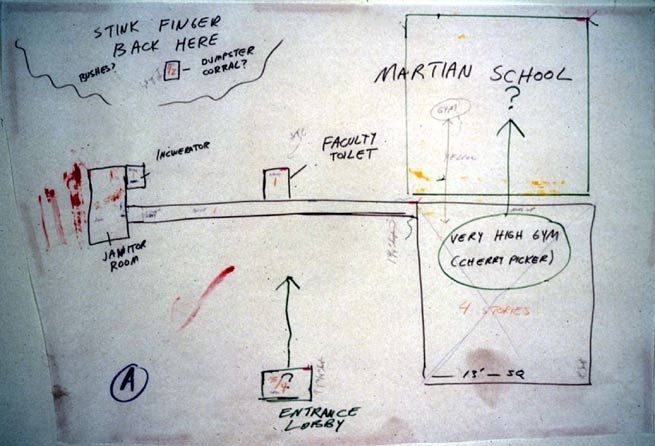 STINK FINGER
BACK HERE
BUSHES?
1/2
DUMPSTER
CORRAL?
MARTIAN SCHOOL
?
GYM
INCINERATOR
FACULTY
TOILET
1
YELLOW
JANITOR
ROOM
VERY HIGH GYM
(CHERRY PICKER)
4 STORIES
13' — SQ
?
3/4
A
ENTRANCE
LOBBY